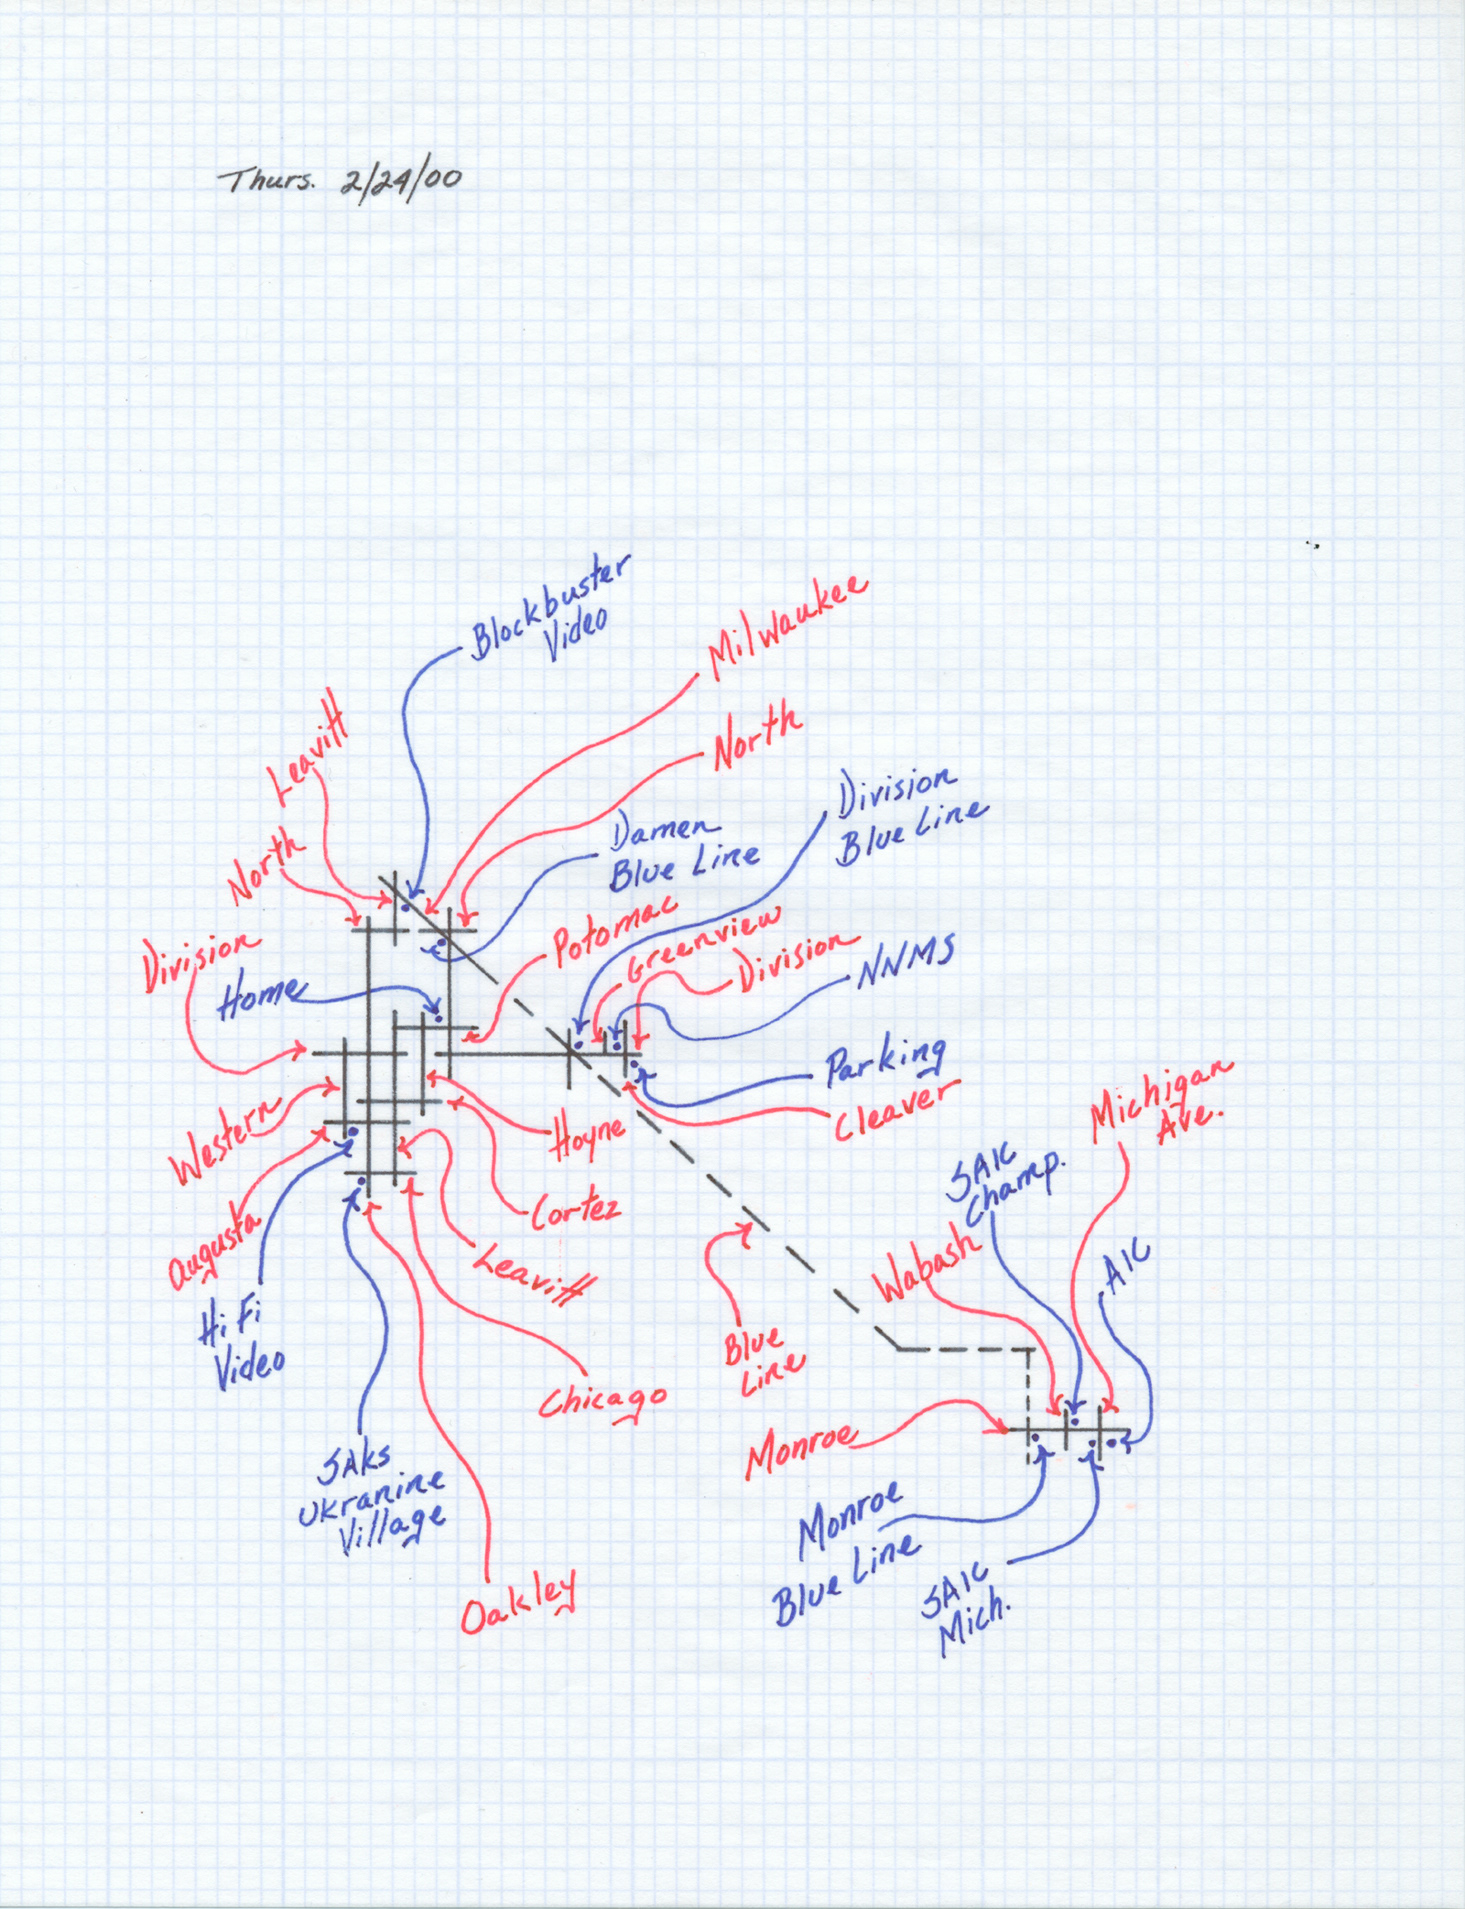 Thurs. 2/24/00
Blockbuster
Video
Milwaukee
Leavitt
North
North
Division
Blue Line
Damen
Blue Line
Potomac
Greenview
Division
NNMS
Division
Home
Parking
Cleaver
Michigan
Ave.
Western
Hoyne
SAIC
Champ.
Cortez
Augusta
Leavitt
Wabash
AIC
Hi Fi
Video
Blue
Line
Chicago
Monroe
SAKs
Ukranine
Village
Monroe
Blue Line
SAIC
Mich.
Oakley